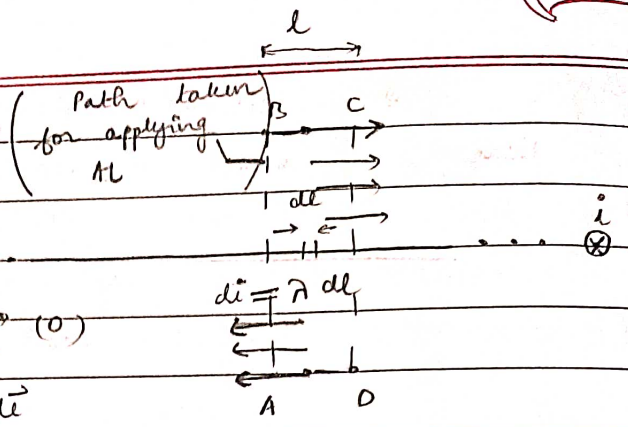 l
Path taken B C
for applying
AL
dl
i
di = λ dl
(0)
A D